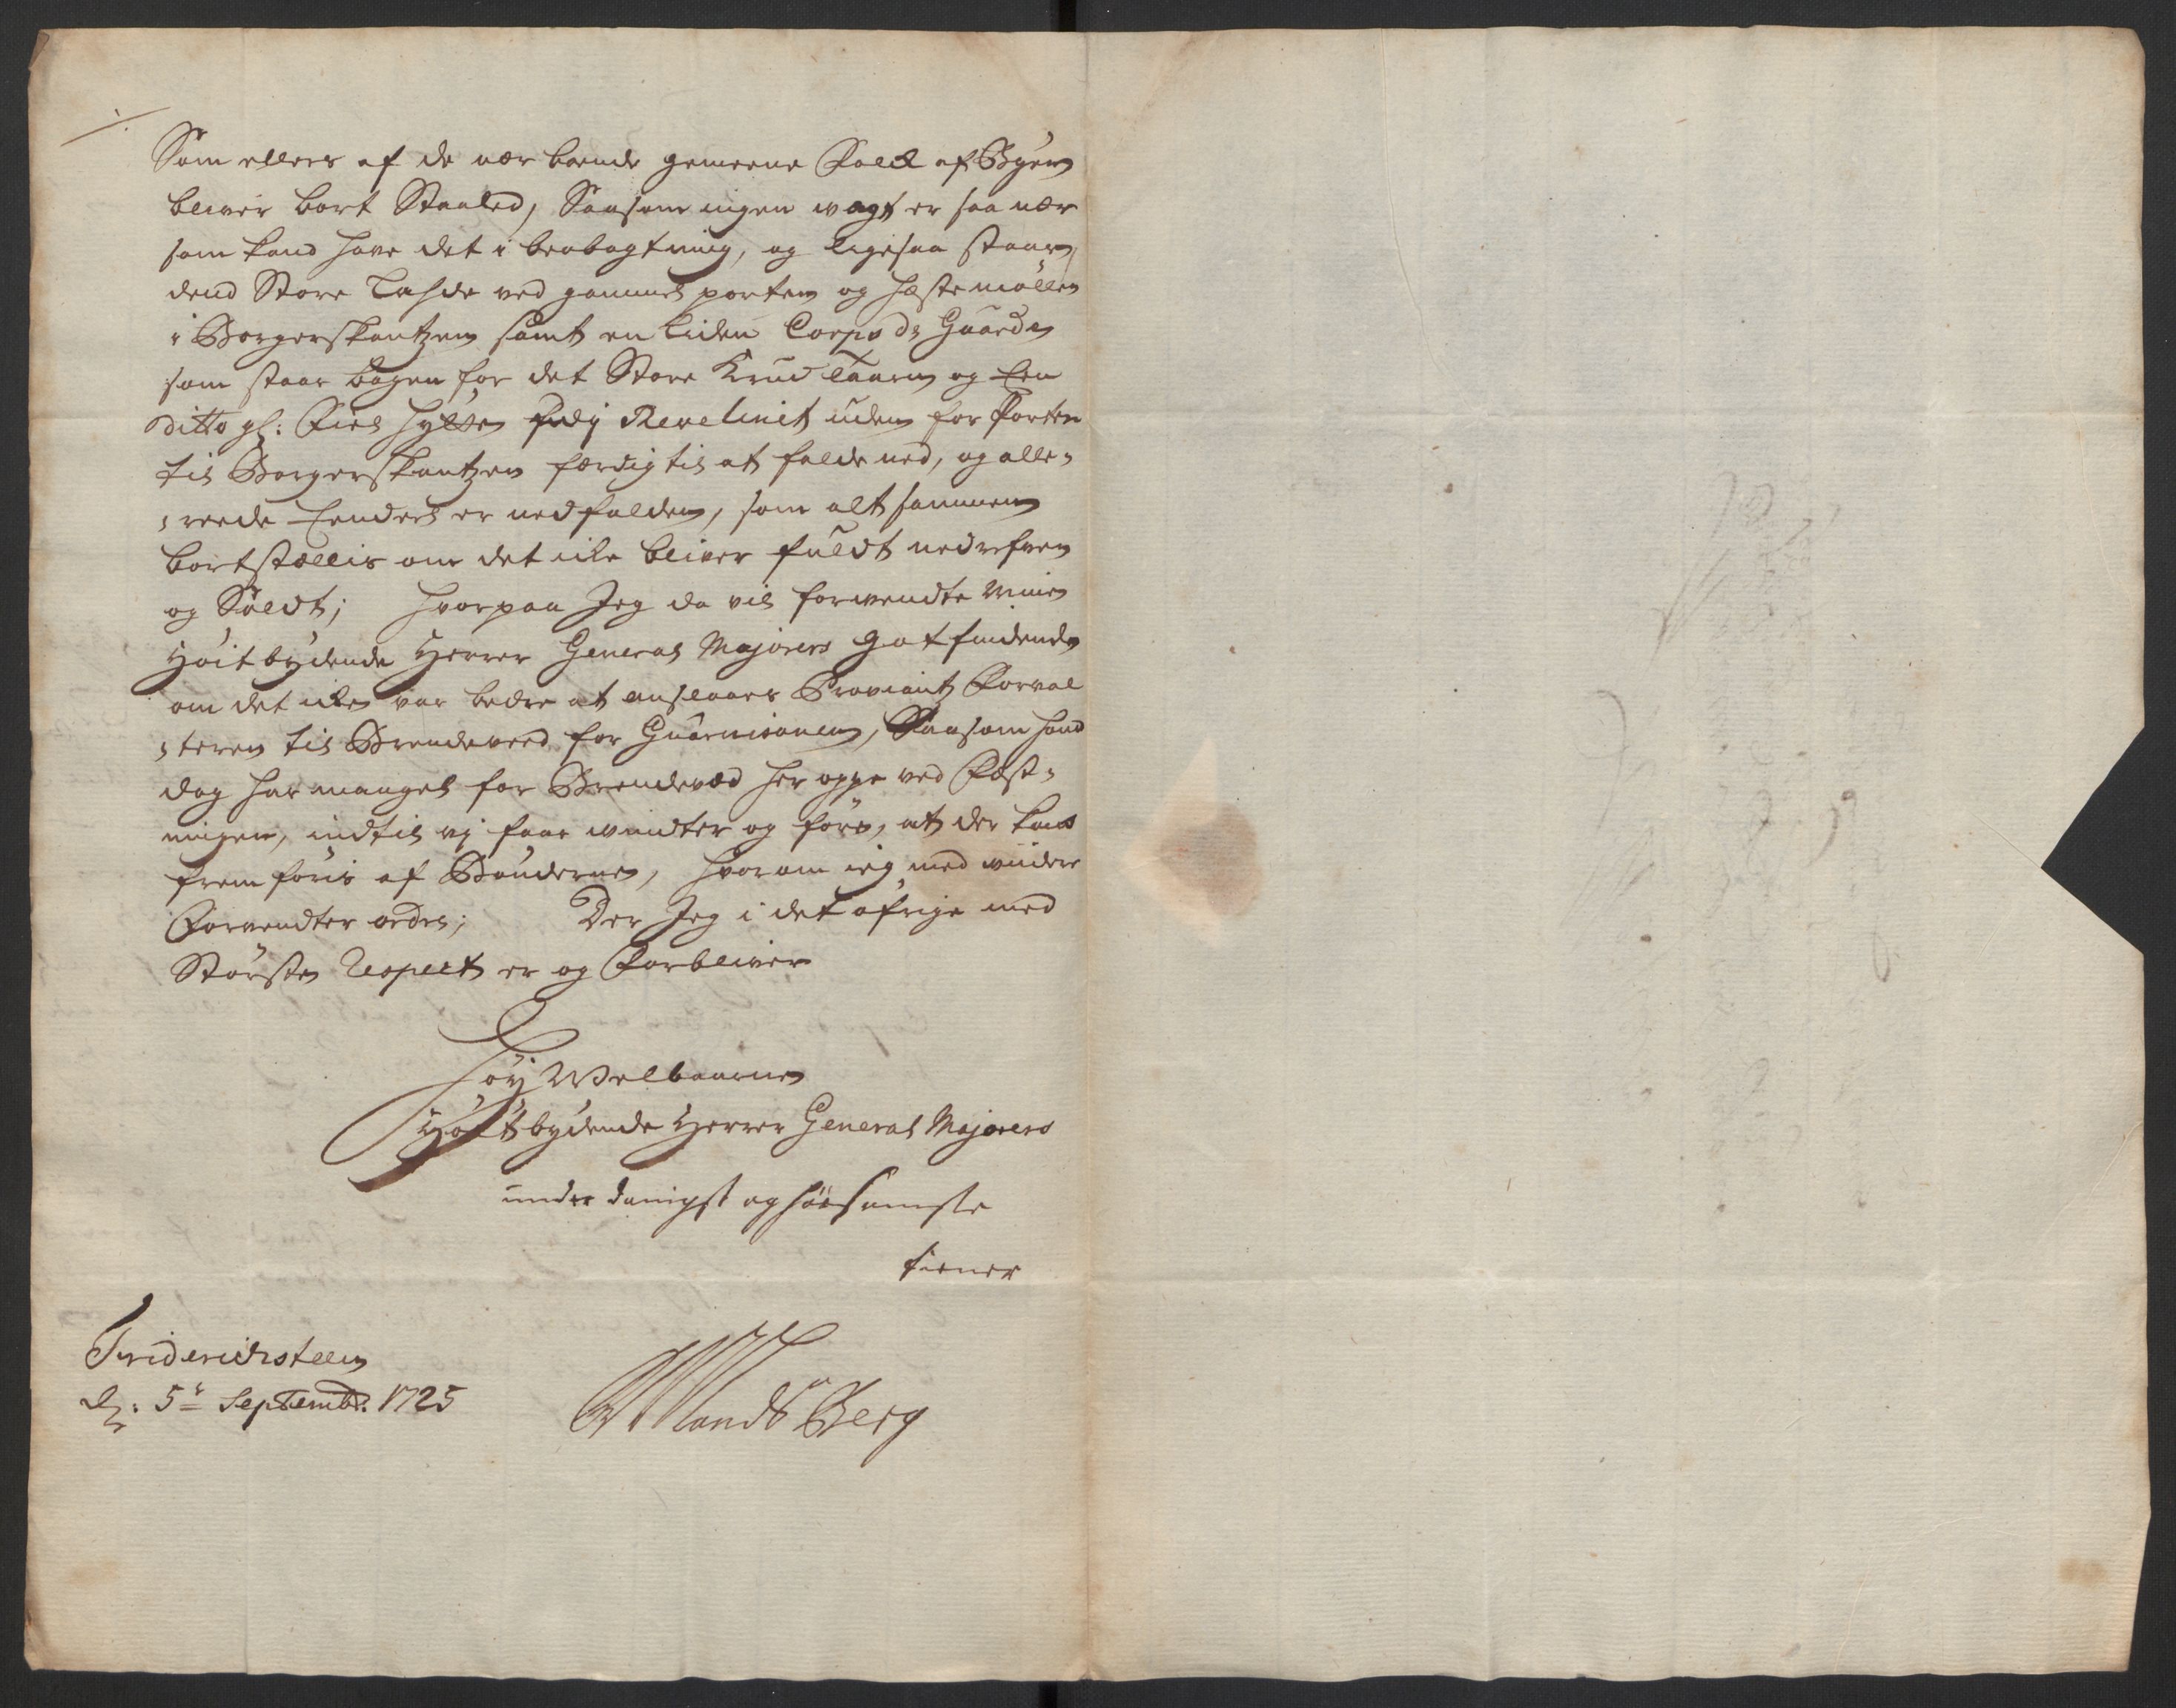 Som ellers af de nær boende gemeene Folck af Byen
bliver bort Staalet, Saasom ingen wagt er saa nær
som kand have det i beobagtning, og ligesaa staar
dend Store Lafede ved gammel porten og Hestemøllen
i Borgerskantzen samt en liden Corps de Guarde
som staar bagen for det Store Krud Taarn og Een
Ditto gl: Fiel Hytte paa Revelinet uden for Porten
til Borgerskantzen færdig til at falde ned, og alle¬
¬reede Eendeel er nedfalden, som alt sammen
bortstællis om det icke bliver fuldt nedrefven
og Soldt; Hvorpaa Jeg da vil forwendte Min
Høitbydende Herrer General Majorers gotfindende
om det icke var bedre at anslaaes Proviant Forval
¬teren til Brendeveed for Guarnisonen, Saasom hand
dog har mangel for Brendeved her oppe ved Fæst¬
ningen, indtil vj faar winter og føre, at der kand
frem føris af Bønderne, Hvorom ieg med widere
Forvendter ordre; Der Jeg i det øfrige med
Største Respect er og Forbliver
Høy Welbaarne
Høitbydende Herrer General Majorers
underdanigst og hørsamste
tiener
Fridericksteen
d: 5t Septembr. 1725
Landsberg